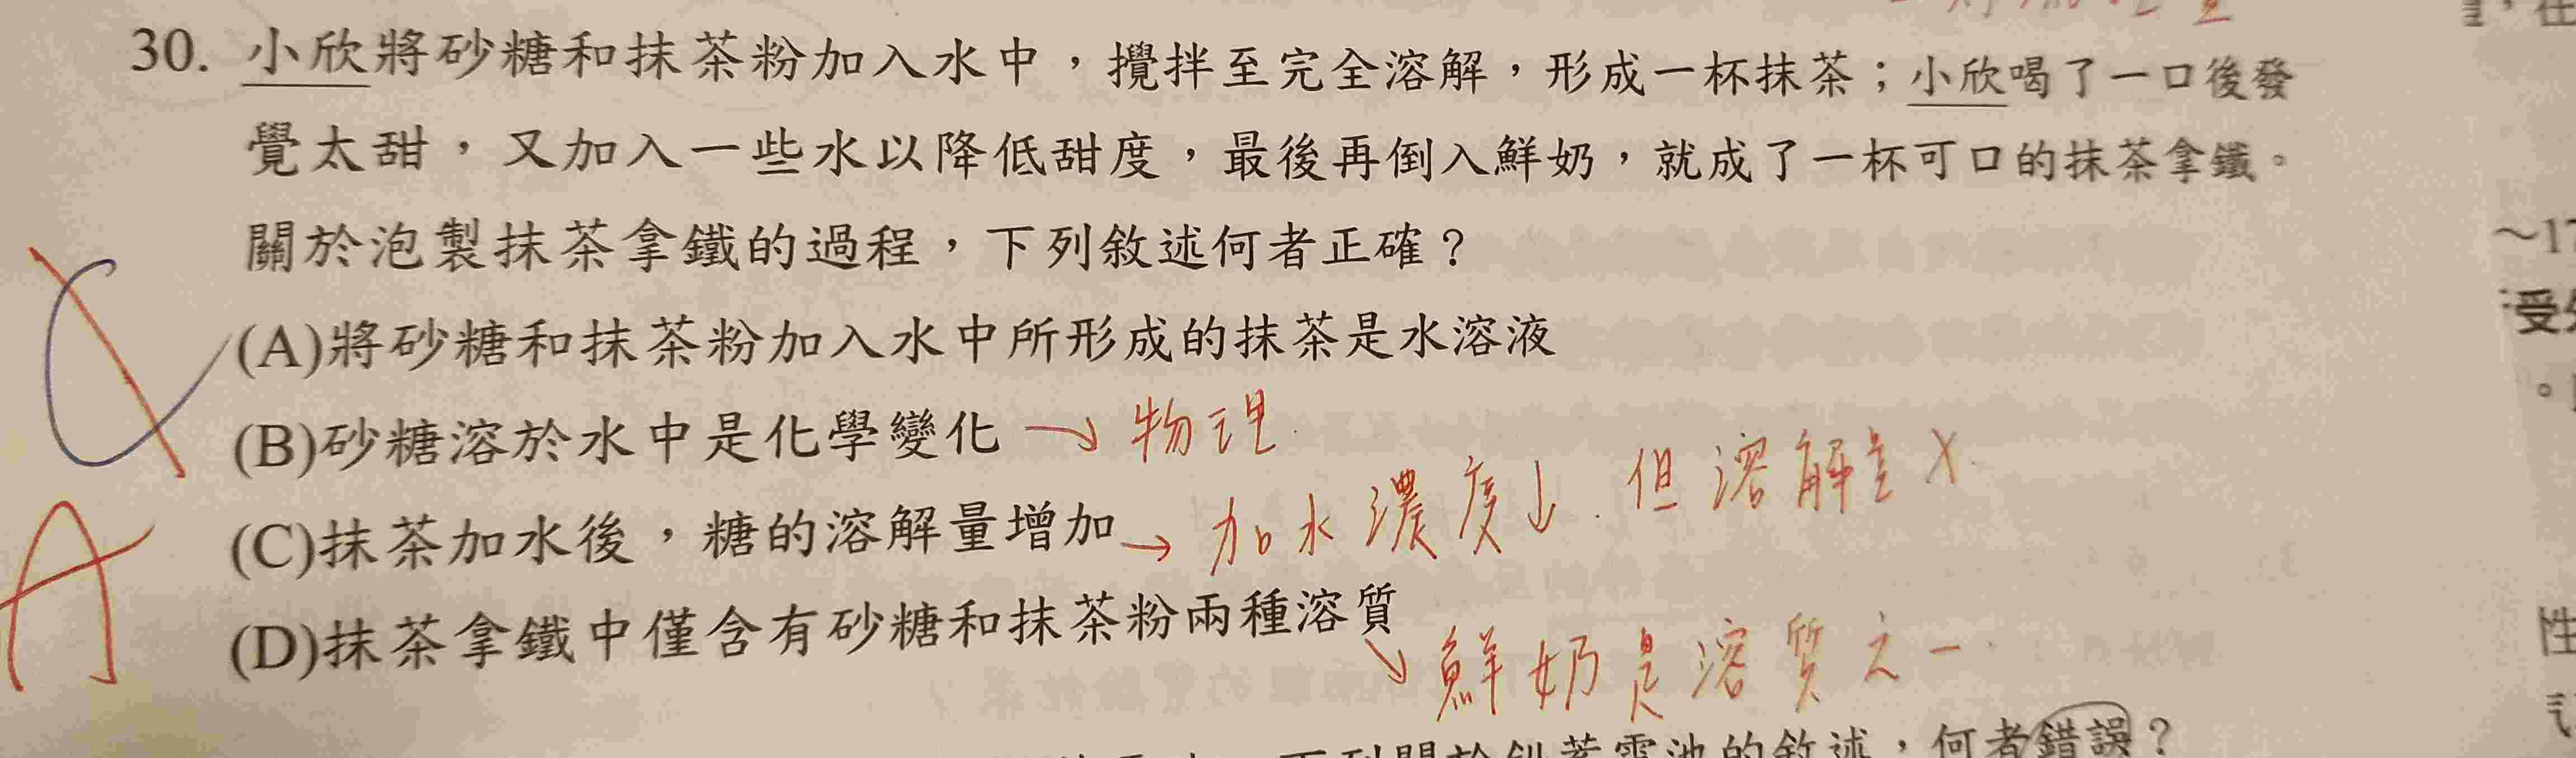 30. 小欣將砂糖和抹茶粉加入水中，攪拌至完全溶解，形成一杯抹茶；小欣喝了一口後發
覺太甜，又加入一些水以降低甜度，最後再倒入鮮奶，就成了一杯可口的抹茶拿鐵。
關於泡製抹茶拿鐵的過程，下列敘述何者正確？
C
(A)將砂糖和抹茶粉加入水中所形成的抹茶是水溶液
(B)砂糖溶於水中是化學變化 → 物理
(C)抹茶加水後，糖的溶解量增加 → 加水濃度↓. 但溶解量X
A
(D)抹茶拿鐵中僅含有砂糖和抹茶粉兩種溶質 → 鮮奶是溶質之一
下列關於鋅銅電池的敘述，何者錯誤？
～17
受
。
性